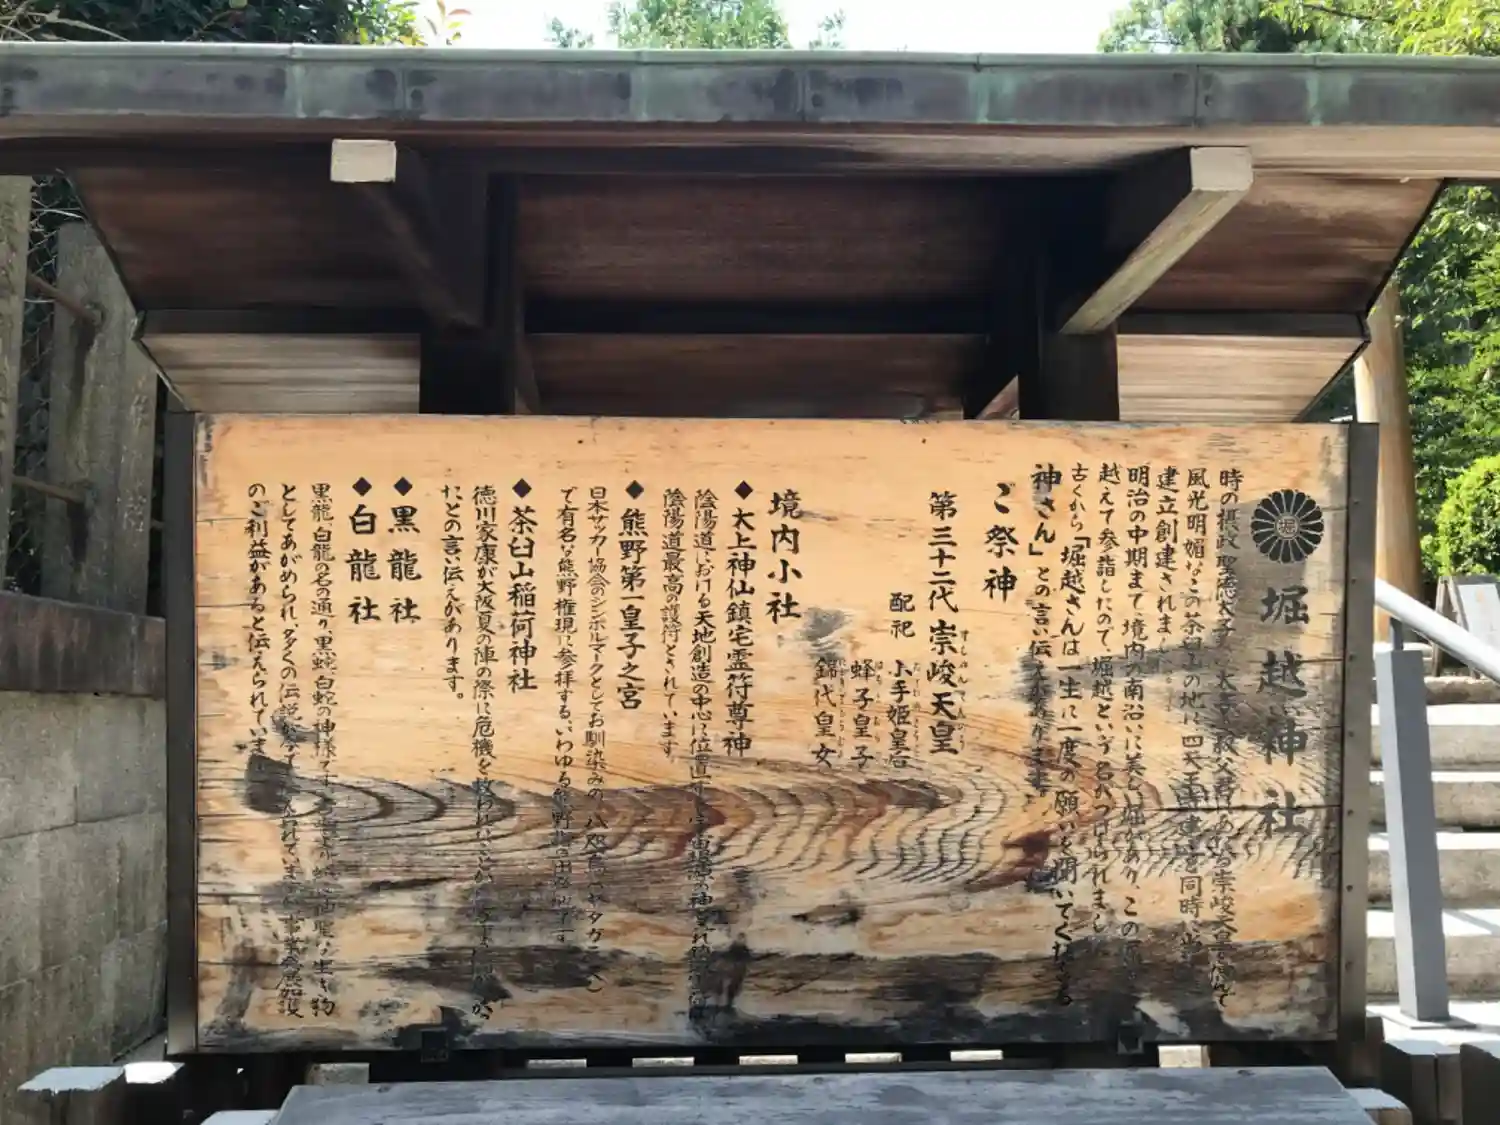 堀越神社
時の摂政聖徳太子が、叔父君の崇峻天皇を偲んで
風光明媚なこの茶臼山の地に四天王寺建立と同時に
建立創建されました
明治の中期まで境内の南沿いに美しい堀があり、この
越えて参詣したので、堀越という名がつけられました
古くから「堀越さんは一生に一度の願いを聞いてくださる
神さん」との言い伝えがあります
ご祭神
第三十二代 崇峻天皇
すしゅんてんのう
配祀 小手姫皇后
蜂子皇子
錦代皇女
境内小社
◆太上神仙鎮宅霊符尊神
陰陽道における天地創造の中心に位置す
陰陽道最高の護符とされています
◆熊野第一皇子之宮
日本サッカー協会のシンボルマークとしてお馴染みの、八咫烏(ヤタガラス)
で有名な熊野権現に参拝する、いわゆる熊野詣
◆茶臼山稲荷神社
徳川家康が大阪夏の陣の際に危機を救われた
たとの言い伝えがあります。
◆黒龍社
◆白龍社
黒龍、白龍の名の通り、黒蛇、白蛇の神様です
としてあがめられ、多くの伝説
のご利益があると伝えられています